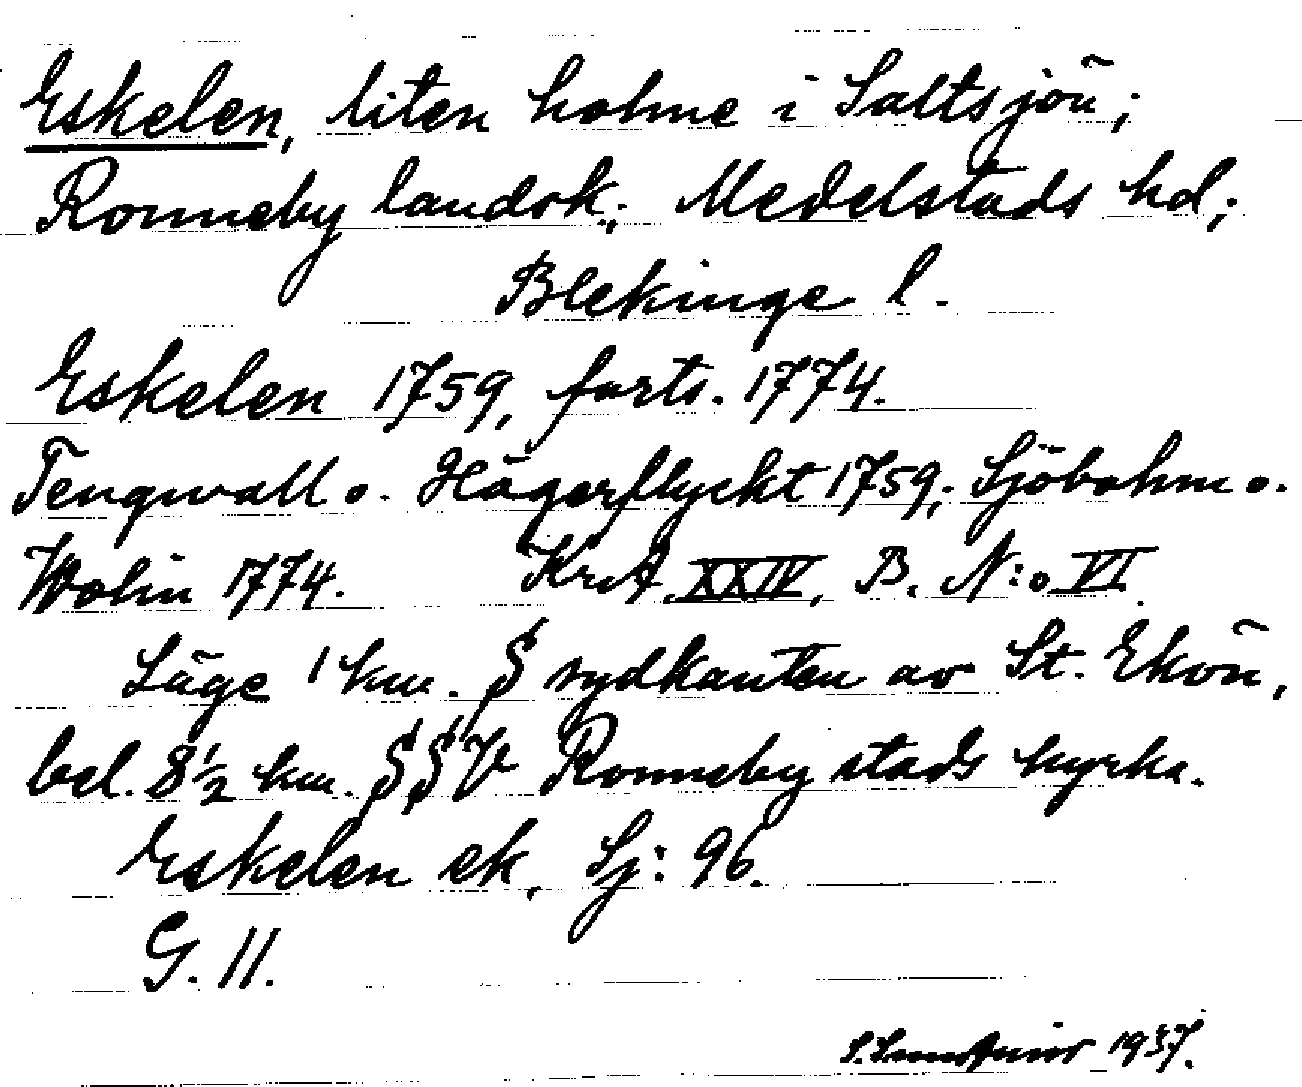 Eskelen, liten holme i Saltsjön;
Ronneby landsk.; Medelstads hd;
Blekinge l.
Eskelen 1759, forts. 1774.
Tengwall o. Hägerflyckt 1759; Sjöbohm o.
Wolin 1774. KrA XXIV, B. N:o VI.
Läge 1 km. S sydkanten av St. Ekön,
bel. 8½ km. SSV Ronneby stads kyrka.
Eskelen ek. Sj: 96.
G. 11.
1937.